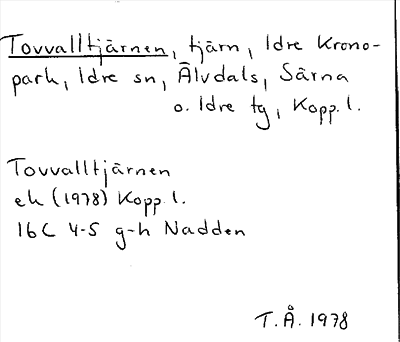 Tovvalltjärnen, tjärn, Idre Krono-
park, Idre sn, Älvdals, Särna
o. Idre tg, Kopp. l.
Tovvalltjärnen
ek (1978) Kopp. l.
16C 4-5 g-h Nadden
T.Å. 1978